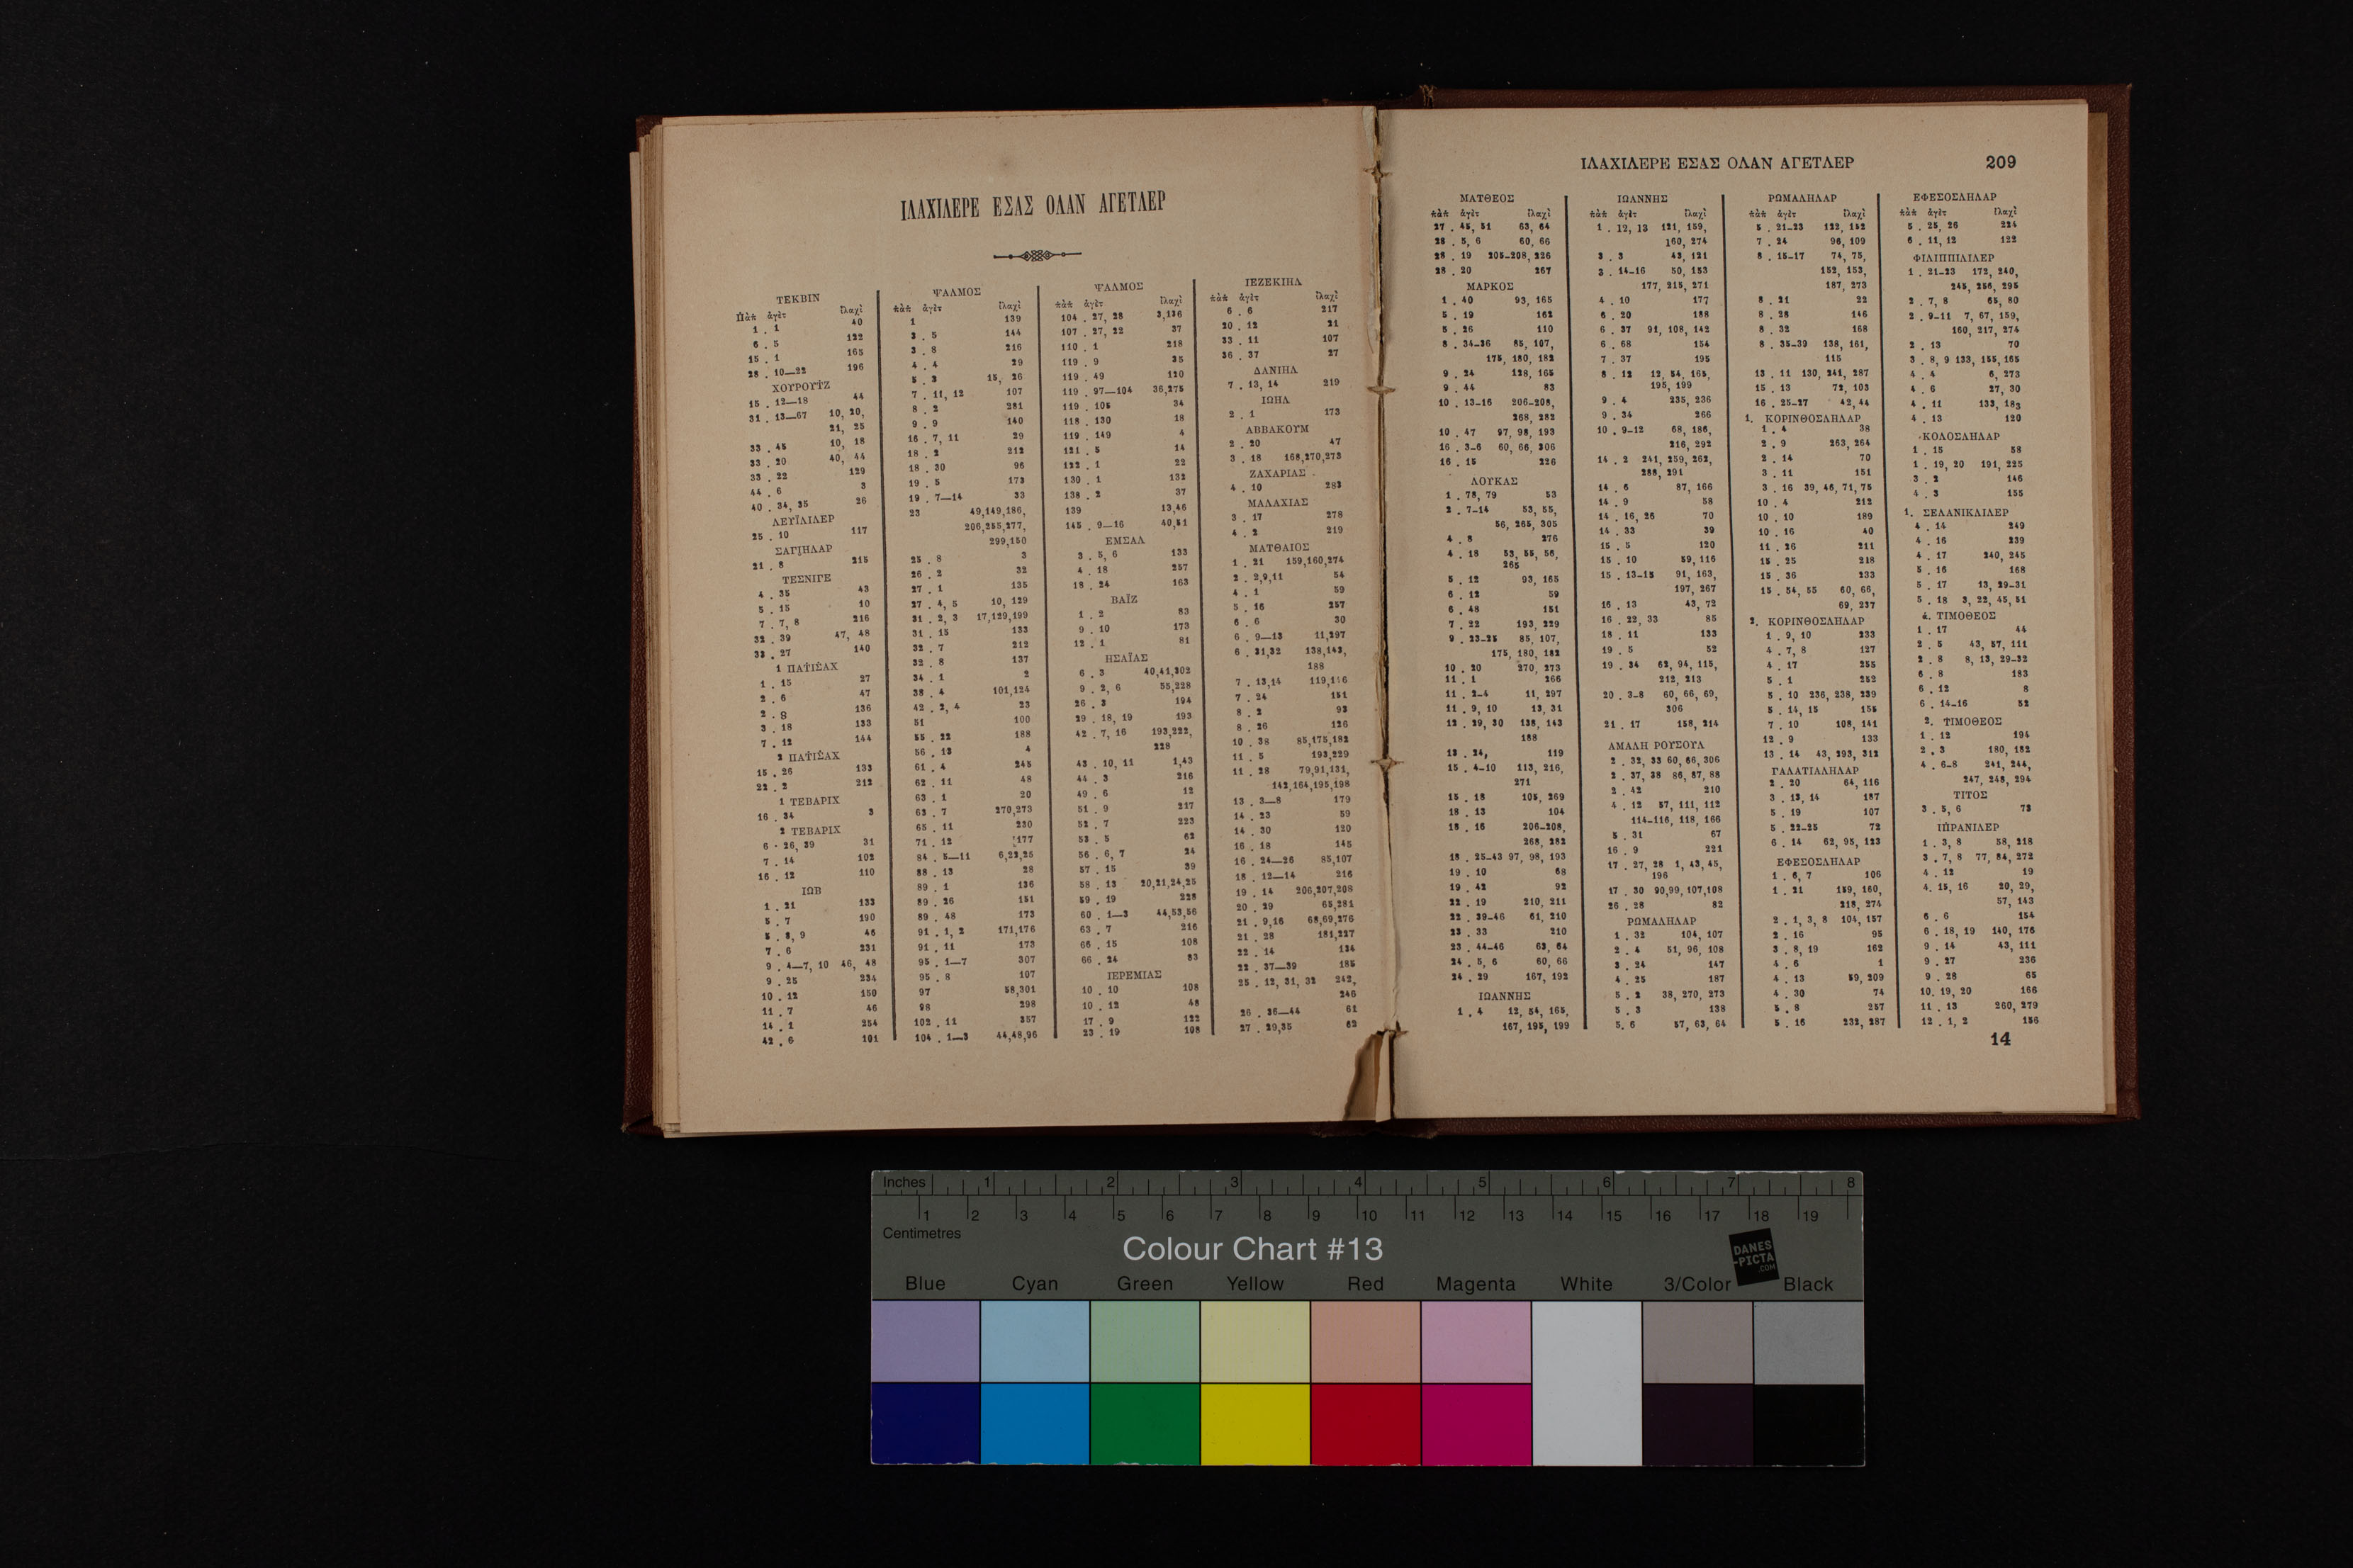 ΙΛΑΧΙΛΕΡΕ ΕΣΑΣ ΟΛΑΝ ΑΓΕΤΛΕΡ
ΤΕΚΒΙΝ
Πὰπ ἀγὲτ ἴλαχὶ
1 . 1 40
6 . 5 122
15 . 1 165
28 . 10—22 196
ΧΟΥΡΟΥΤΖ
15 . 12—18 44
31 . 13—67 10, 20,
21, 25
33 . 45 10, 18
33 . 20 40, 44
33 . 22 129
44 . 6 3
40 . 34, 35 26
ΛΕΥΪΛΙΛΕΡ
25 . 10 117
ΣΑΓΙΗΛΑΡ
21 . 8 215
ΤΕΣΝΙΓΕ
4 . 35 43
5 . 15 10
7 . 7, 8 216
32 . 39 47, 48
33 . 27 140
1 ΠΑΤΙΣΑΧ
1 . 15 27
2 . 6 47
2 . 8 136
3 . 18 133
7 . 12 144
2 ΠΑΤΙΣΑΧ
15 . 26 133
22 . 2 212
1 ΤΕΒΑΡΙΧ
16 . 34 3
2 ΤΕΒΑΡΙΧ
6 . 26, 39 31
7 . 14 102
16 . 12 110
ΙΩΒ
1 . 21 133
5 . 7 190
5 . 8, 9 46
7 . 6 231
9 . 4—7, 10 46, 48
9 . 25 234
10 . 12 150
11 . 7 46
14 . 1 254
42 . 6 101
ΨΑΛΜΟΣ
πὰπ ἀγὲτ ἴλαχὶ
1 139
3 . 5 144
3 . 8 216
4 . 4 29
5 . 3 15, 26
7 . 11, 12 107
8 . 2 281
9 . 9 140
16 . 7, 11 29
18 . 2 212
18 . 30 96
19 . 5 173
19 . 7—14 33
23 49,149,186,
206,255,277,
299,150
25 . 8 3
26 . 2 32
27 . 1 135
27 . 4, 5 10, 129
31 . 2, 3 17,129,199
31 . 15 133
32 . 7 212
32 . 8 137
34 . 1 2
38 . 4 101,124
42 . 2, 4 23
51 100
55 . 22 188
56 . 13 4
61 . 4 245
62 . 11 48
63 . 1 20
63 . 7 270,273
65 . 11 230
71 . 12 177
84 . 5—11 6,22,25
88 . 13 28
89 . 1 136
89 . 26 151
89 . 48 173
91 . 1, 2 171,176
91 . 11 173
95 . 1—7 307
95 . 8 107
97 58,301
98 298
102 . 11 257
104 . 1—3 44,48,96
ΨΑΛΜΟΣ
πὰπ ἀγὲτ ἴλαχὶ
104 . 27, 28 3,136
107 . 27, 22 37
110 . 1 218
119 . 9 35
119 . 49 120
119 . 97—104 36,275
119 . 105 34
118 . 130 18
119 . 149 4
121 . 5 14
122 . 1 22
130 . 1 132
138 . 2 37
139 13,46
145 . 9—16 40,51
ΕΜΣΑΛ
3 . 5, 6 133
4 . 18 257
18 . 24 163
ΒΑΪΖ
1 . 2 83
9 . 10 173
12 . 1 81
ΗΣΑΪΑΣ
6 . 3 40,41,302
9 . 2, 6 55,228
26 . 3 194
29 . 18, 19 193
42 . 7, 16 193,222,
228
43 . 10, 11 1,43
44 . 3 216
49 . 6 12
51 . 9 217
52 . 7 223
53 . 5 62
56 . 6, 7 24
57 . 15 39
58 . 13 20,21,24,25
59 . 19 228
60 . 1—3 44,53,56
63 . 7 216
66 . 15 108
66 . 24 83
ΙΕΡΕΜΙΑΣ
10 . 10 108
10 . 12 48
17 . 9 122
23 . 19 108
ΙΕΖΕΚΙΗΛ
πὰπ ἀγὲτ ἴλαχὶ
6 . 6 217
20 . 12 21
33 . 11 107
36 . 37 27
ΔΑΝΙΗΛ
7 . 13, 14 219
ΙΩΗΛ
2 . 1 173
ΑΒΒΑΚΟΥΜ
2 . 20 47
3 . 18 168,270,273
ΖΑΧΑΡΙΑΣ
4 . 10 283
ΜΑΛΑΧΙΑΣ
3 . 17 278
4 . 2 219
ΜΑΤΘΑΙΟΣ
1 . 21 159,160,274
2 . 2,9,11 54
4 . 1 59
5 . 16 257
6 . 6 30
6 . 9—13 11,297
6 . 31,32 138,143,
188
7 . 13,14 119,116
7 . 24 151
8 . 2 93
8 . 26 126
10 . 38 85,175,182
11 . 5 193,229
11 . 28 79,91,131,
142,164,195,198
13 . 3—8 179
14 . 23 59
14 . 30 120
16 . 18 145
16 . 24—26 85,107
18 . 12—14 216
19 . 14 206,207,208
20 . 29 65,281
21 . 9,16 68,69,276
21 . 28 181,227
22 . 14 124
22 . 37—39 185
25 . 12, 31, 32 242,
246
26 . 36—44 61
27 . 29,35 62
ΙΛΑΧΙΛΕΡΕ ΕΣΑΣ ΟΛΑΝ ΑΓΕΤΛΕΡ 209
ΜΑΤΘΕΟΣ
πὰπ ἀγὲτ ἴλαχὶ
27 . 45, 51 63, 64
28 . 5, 6 60, 66
28 . 19 205-208, 226
28 . 20 267
ΜΑΡΚΟΣ
1 . 40 93, 165
5 . 19 162
5 . 26 110
8 . 34-36 85, 107,
175, 180, 182
9 . 24 128, 165
9 . 44 83
10 . 13-16 206-208,
268, 282
10 . 47 97, 98, 193
16 . 3-6 60, 66, 306
16 . 15 226
ΛΟΥΚΑΣ
1 . 78, 79 53
2 . 7-14 53, 55,
56, 265, 305
4 . 8 276
4 . 18 53, 55, 56,
265
5 . 12 93, 165
6 . 12 59
6 . 48 151
7 . 22 193, 229
9 . 23-25 85, 107,
175, 180, 182
10 . 20 270, 273
11 . 1 266
11 . 2-4 11, 297
11 . 9, 10 13, 31
12 . 29, 30 138, 143
188
13 . 24, 119
15 . 4-10 113, 216,
271
15 . 18 105, 269
18 . 13 104
18 . 16 206-208,
268, 282
18 . 25-43 97, 98, 193
19 . 10 68
19 . 42 92
22 . 19 210, 211
22 . 39-46 61, 210
23 . 33 210
23 . 44-46 63, 64
24 . 5, 6 60, 66
24 . 29 167, 192
ΙΩΑΝΝΗΣ
1 . 4 12, 54, 165,
167, 195, 199
ΙΩΑΝΝΗΣ
πὰπ ἀγὲτ ἴλαχὶ
1 . 12, 13 121, 159,
160, 274
3 . 3 43, 121
3 . 14-16 50, 153
177, 215, 271
4 . 10 177
6 . 20 188
6 . 37 91, 108, 142
6 . 68 154
7 . 37 195
8 . 12 12, 54, 165,
195, 199
9 . 4 235, 236
9 . 34 266
10 . 9-12 68, 186,
216, 292
14 . 2 241, 259, 262,
288, 291
14 . 6 87, 166
14 . 9 58
14 . 16, 26 70
14 . 33 39
15 . 5 120
15 . 10 59, 116
15 . 13-15 91, 163,
197, 267
16 . 13 43, 72
16 . 22, 33 85
18 . 11 133
19 . 5 52
19 . 34 62, 94, 115,
212, 213
20 . 3-8 60, 66, 69,
306
21 . 17 158, 214
ΑΜΑΛΗ ΡΟΥΣΟΥΛ
2 . 32, 33 60, 66, 306
2 . 37, 38 86, 87, 88
2 . 42 210
4 . 12 57, 111, 112
114-116, 118, 166
5 . 31 67
16 . 9 221
17 . 27, 28 1, 43, 45,
196
17 . 30 90,99, 107,108
26 . 28 82
ΡΩΜΑΛΗΛΑΡ
1 . 32 104, 107
2 . 4 51, 96, 108
3 . 24 147
4 . 25 187
5 . 2 38, 270, 273
5 . 3 138
5. 6 57, 63, 64
ΡΩΜΑΛΗΛΑΡ
πὰπ ἀγὲτ ἴλαχὶ
5 . 21-23 122, 152
7 . 24 96, 109
8 . 15-17 74, 75,
152, 153,
187, 273
8 . 21 22
8 . 28 146
8 . 32 168
8 . 35-39 138, 161,
115
13 . 11 130, 241, 287
15 . 13 72, 103
16 . 25-27 42, 44
1. ΚΟΡΙΝΘΟΣΛΗΛΑΡ
1 . 4 38
2 . 9 263, 264
2 . 14 70
3 . 11 151
3 . 16 39, 46, 71, 75
10 . 4 212
10 . 10 189
10 . 16 40
11 . 26 211
15 . 25 218
15 . 36 233
15 . 54, 55 60, 66,
69, 237
2. ΚΟΡΙΝΘΟΣΛΗΛΑΡ
1 . 9, 10 233
4 . 7, 8 127
4 . 17 255
5 . 1 252
5 . 10 236, 238, 239
5 . 14, 15 155
7 . 10 108, 141
12 . 9 133
13 . 14 43, 293, 312
ΓΑΛΑΤΙΑΛΗΛΑΡ
2 . 20 64, 116
3 . 13, 14 187
5 . 19 107
5 . 22-25 72
6 . 14 62, 95, 123
ΕΦΕΣΟΣΛΗΛΑΡ
1 . 6, 7 106
1 . 21 159, 160,
218, 274
2 . 1, 3, 8 104, 157
2 . 16 95
3 . 8, 19 162
4 . 6 1
4 . 13 59, 209
4 . 30 74
5 . 8 257
5 . 16 232, 287
ΕΦΕΣΟΣΛΗΛΑΡ
πὰπ ἀγὲτ ἴλαχὶ
5 . 25, 26 224
6 . 11, 12 122
ΦΙΛΙΠΠΙΛΙΛΕΡ
1 . 21-23 172, 240,
245, 256, 295
2 . 7, 8 65, 80
2 . 9-11 7, 67, 159,
160, 217, 274
2 . 13 70
3 . 8, 9 133, 155, 165
4 . 4 6, 273
4 . 6 27, 30
4 . 11 133, 183
4 . 13 120
ΚΟΛΟΣΛΗΛΑΡ
1 . 15 58
1 . 19, 20 191, 225
3 . 2 146
4 . 3 155
1. ΣΕΛΑΝΙΚΛΙΛΕΡ
4 . 14 249
4 . 16 239
4 . 17 240, 245
5 . 16 168
5 . 17 13, 29-31
5 . 18 3, 22, 45, 51
ΤΙΜΟΘΕΟΣ
1 . 17 44
2 . 5 43, 57, 111
2 . 8 8, 13, 29-32
6 . 8 183
6 . 12 8
6 . 14-16 52
2. ΤΙΜΟΘΕΟΣ
1 . 12 194
2 . 3 180, 182
4 . 6-8 241, 244,
247, 248, 294
ΤΙΤΟΣ
3 . 5, 6 73
ΙΠΡΑΝΙΛΕΡ
1 . 3, 8 58, 218
3 . 7, 8 77, 84, 272
4 . 12 19
4. 15, 16 20, 29,
57, 143
6 . 6 154
6 . 18, 19 140, 176
9 . 14 43, 111
9 . 27 236
9 . 28 65
10. 19, 20 166
11 . 13 260, 279
12 . 1, 2 156
14
Inches 1 2 3 4 5 6 7 8
1 2 3 4 5 6 7 8 9 10 11 12 13 14 15 16 17 18 19
Centimetres
Colour Chart #13
DANES
-PICTA
.COM
Blue Cyan Green Yellow Red Magenta White 3/Color Black